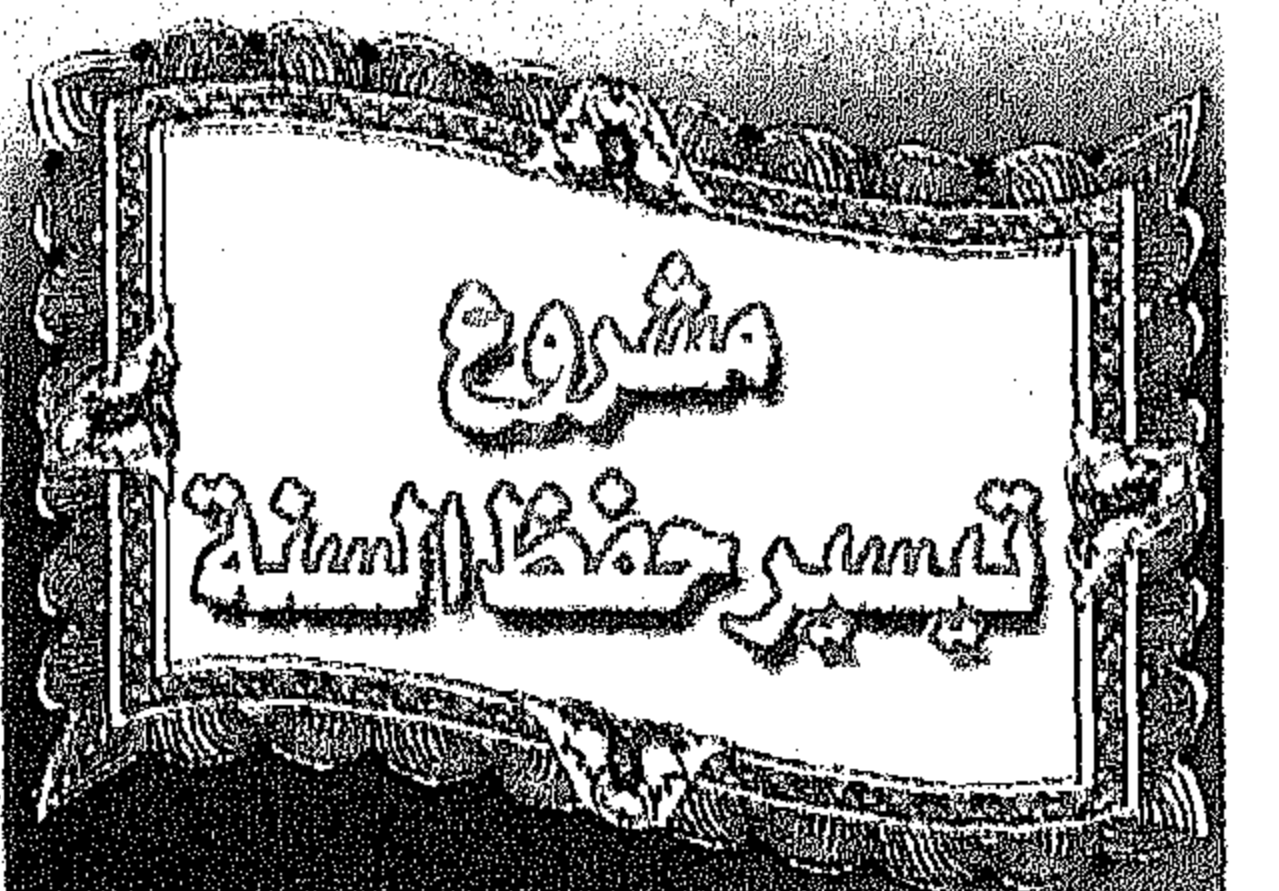 مشروع
تيسير حفظ السنة